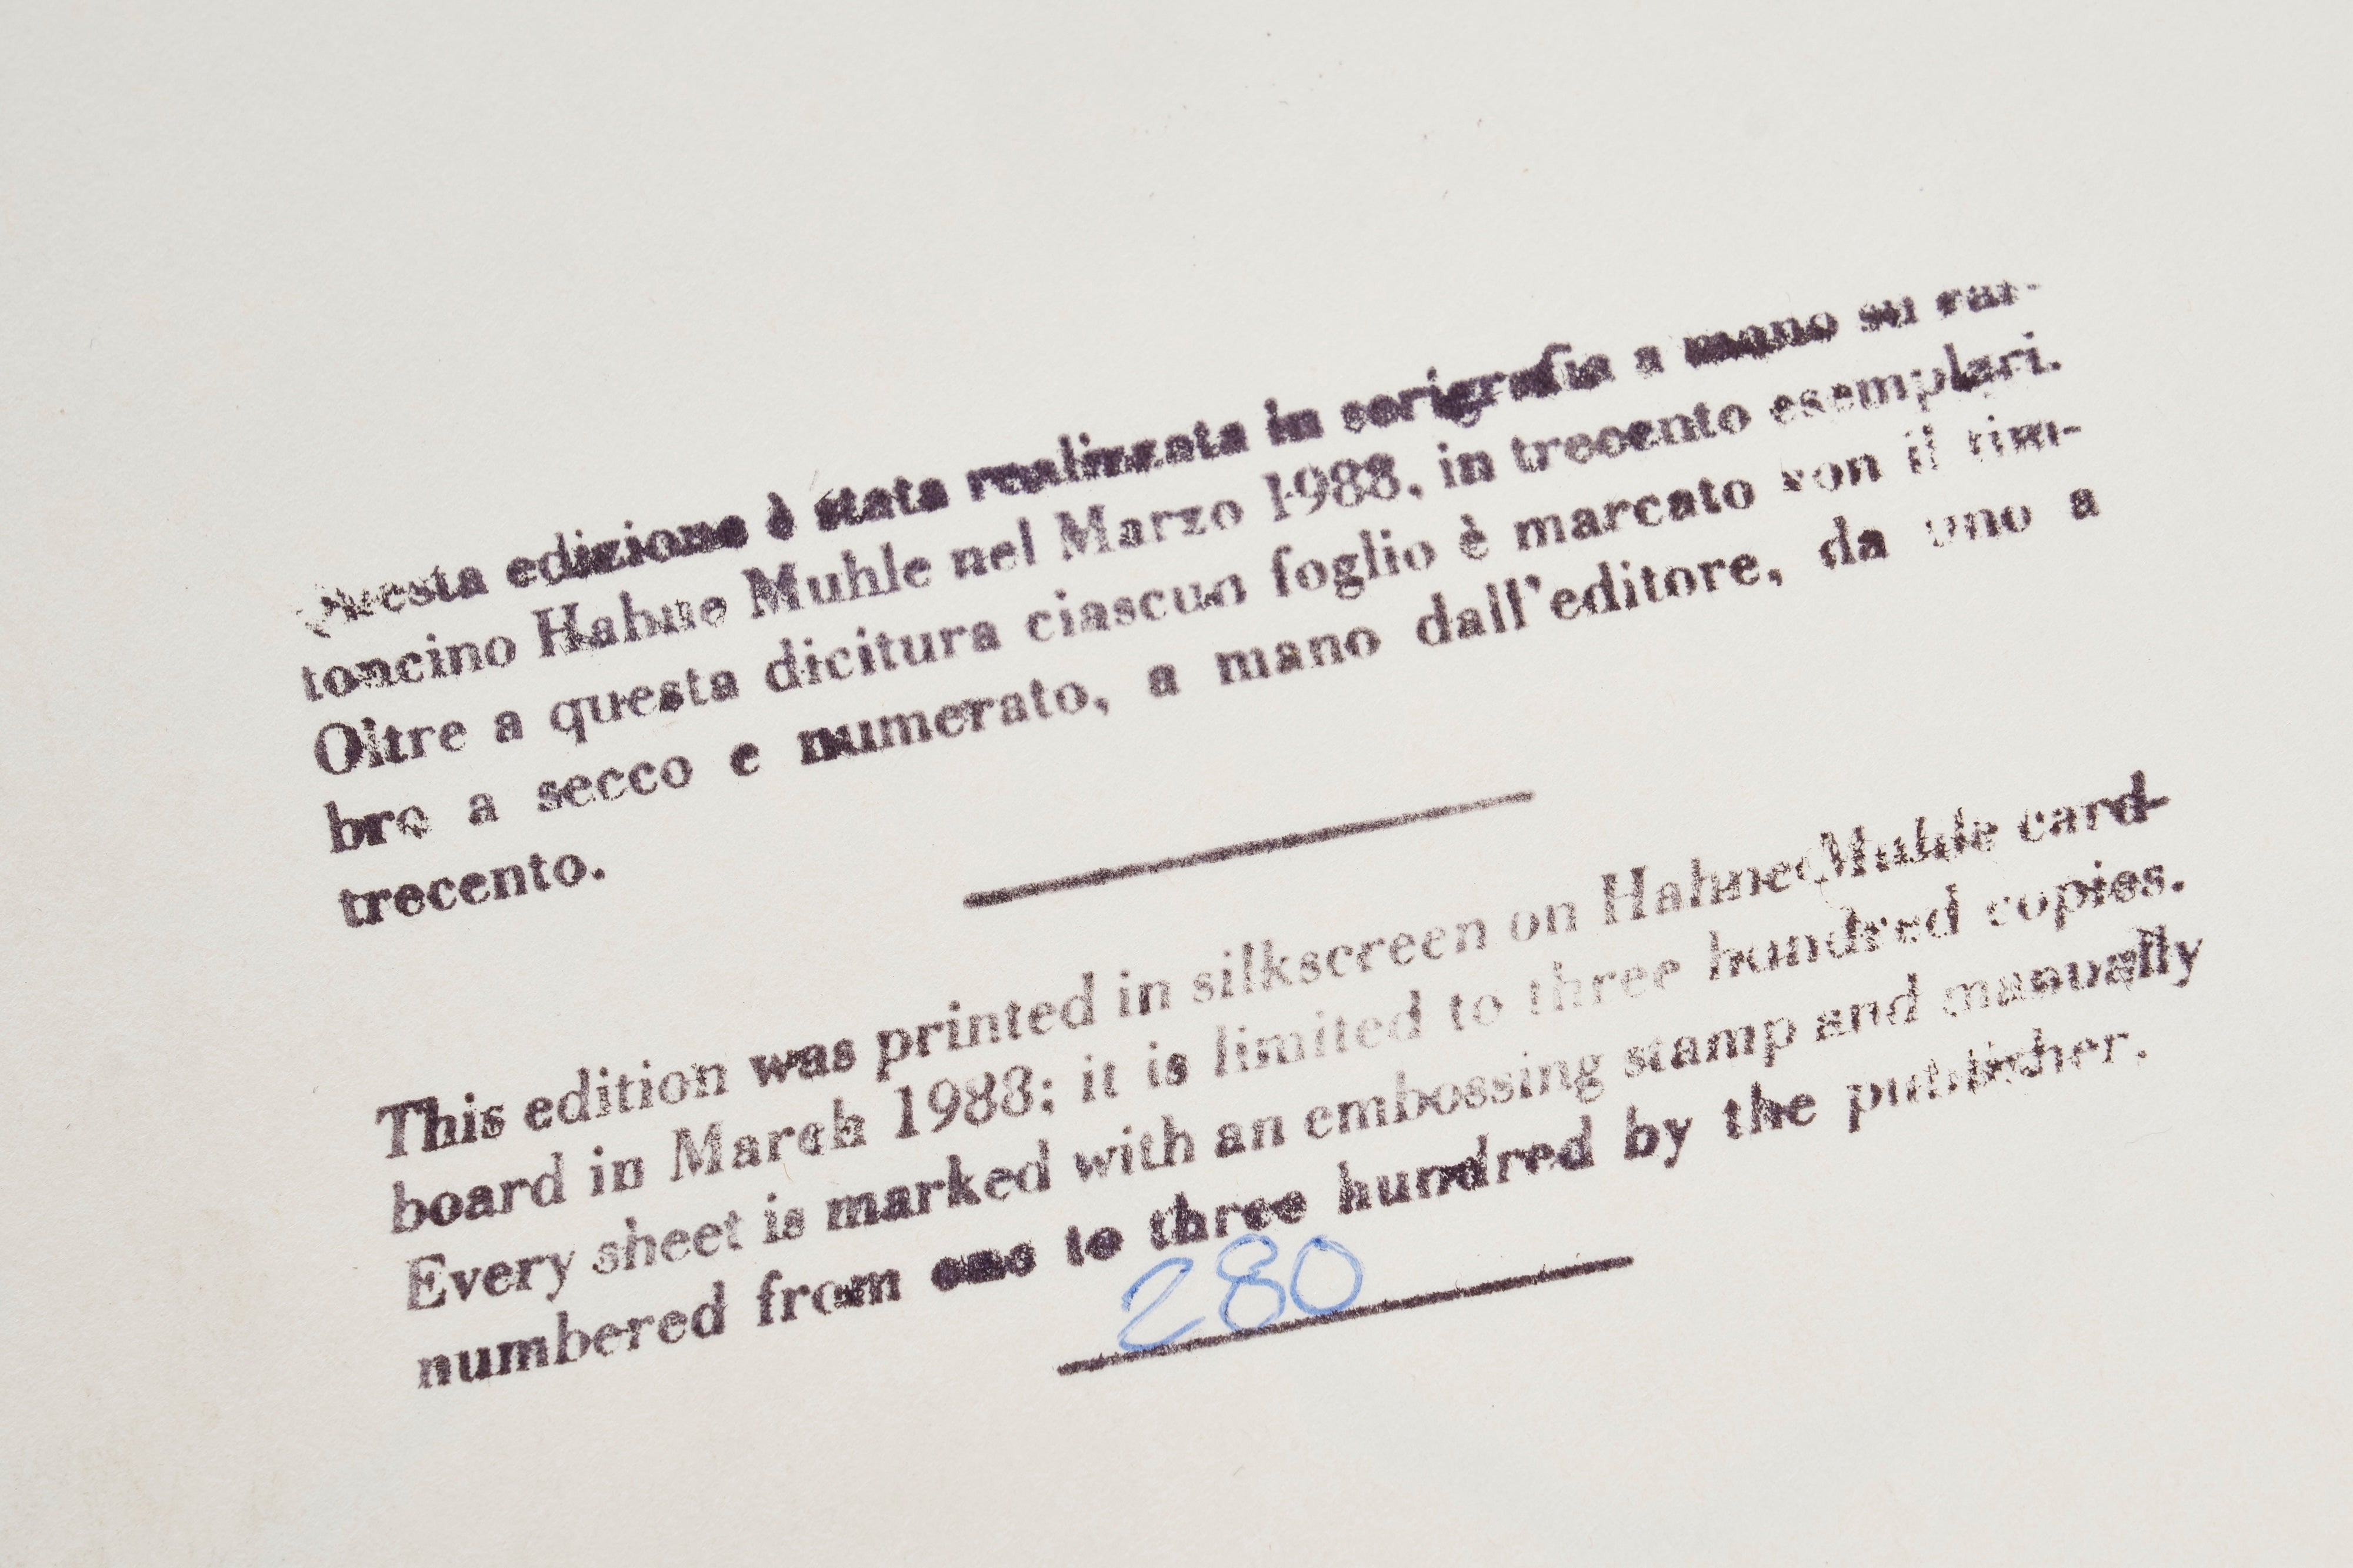 Questa edizione è stata realizzata in serigrafia a mano su car-
toncino Hahne Muhle nel Marzo 1988, in trecento esemplari.
Oltre a questa dicitura ciascun foglio è marcato con il tim-
bro a secco e numerato, a mano dall'editore, da uno a
trecento.
This edition was printed in silkscreen on Hahne Muhle card-
board in March 1988; it is limited to three hundred copies.
Every sheet is marked with an embossing stamp and manually
numbered from one to three hundred by the publisher.
280